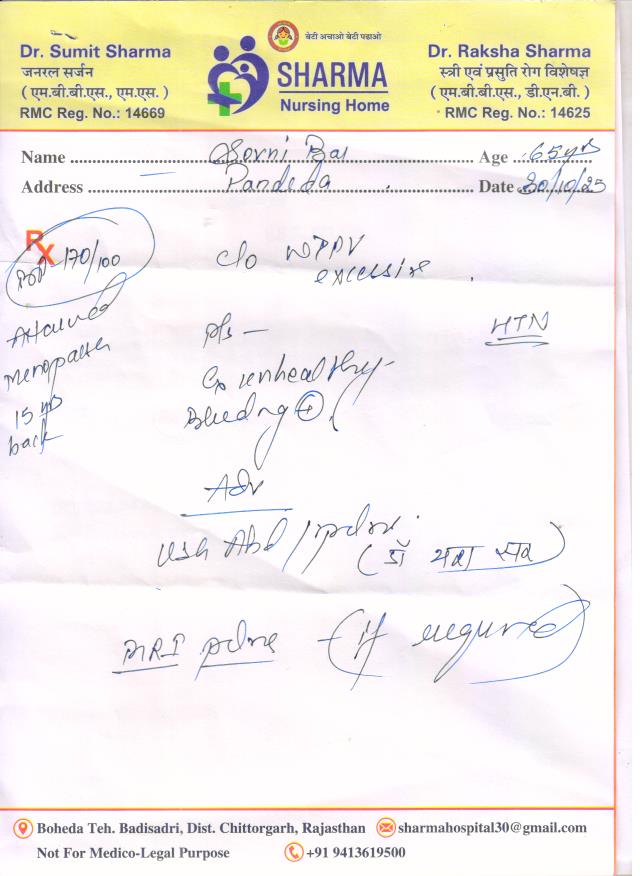 बेटी बचाओ बेटी पढ़ाओ
Dr. Sumit Sharma
जनरल सर्जन
( एम.बी.बी.एस., एम.एस. )
RMC Reg. No.: 14669
SHARMA
Nursing Home
Dr. Raksha Sharma
स्त्री एवं प्रसुति रोग विशेषज्ञ
( एम.बी.बी.एस., डी.एन.बी. )
RMC Reg. No.: 14625
Name Sovni Bai Age 65 yrs
Address Pandeda Date 30/10/25
Rx
BP - 170/100
c/o WDPV
excessive
Attained
Menopause
15 yrs
back
HTN
P/s -
Cx unhealthy
Bleeding +
Adv
USG Abd/pelvis
MRI pelvis (if required)
Boheda Teh. Badisadri, Dist. Chittorgarh, Rajasthan sharmahospital30@gmail.com
Not For Medico-Legal Purpose +91 9413619500